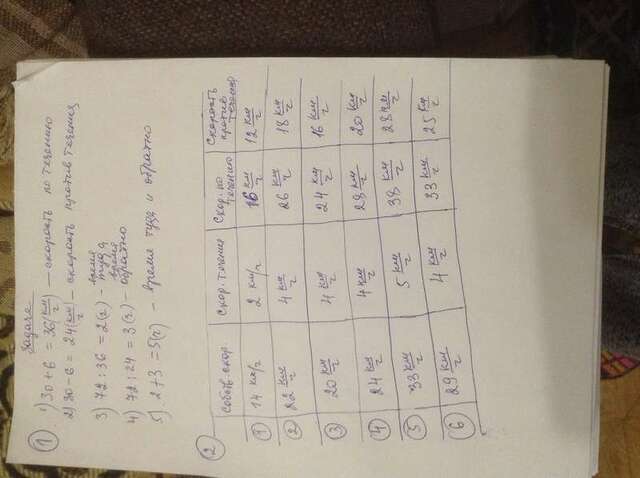 Задача
① 1) 30 + 6 = 36 (км/ч) — скорость по течению
2) 30 - 6 = 24 (км/ч) — скорость против течения
3) 72 : 36 = 2 (ч) — время туда
4) 72 : 24 = 3 (ч) — время обратно
5) 2 + 3 = 5 (ч) — время туда и обратно
②
Собств. скор Скор. течения Скор. по течению Скорость против течения
① 14 км/ч 2 км/ч 16 км/ч 12 км/ч
② 22 км/ч 4 км/ч 26 км/ч 18 км/ч
③ 20 км/ч 4 км/ч 24 км/ч 16 км/ч
④ 24 км/ч 4 км/ч 28 км/ч 20 км/ч
⑤ 33 км/ч 5 км/ч 38 км/ч 28 км/ч
⑥ 29 км/ч 4 км/ч 33 км/ч 25 км/ч